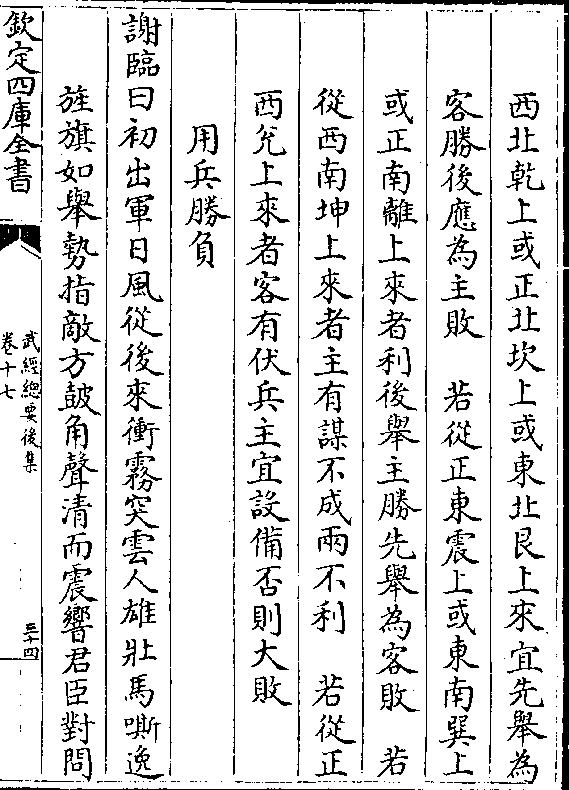 西北乾上或正北坎上或東北艮上來宜先舉為
客勝後應為主敗　若從正東震上或東南巽上
或正南離上來者利後舉主勝先舉為客敗　若
從西南坤上來者主有謀不成兩不利　若從正
西兊上來者客有伏兵主宜設備否則大敗
用兵勝負
謝臨曰初出軍日風從後來衝霧突雲人雄壯馬嘶逸
旌旗如舉勢指敵方鼓角聲清而震響君臣對問
欽定四庫全書
武經總要後集
卷十七
三十四